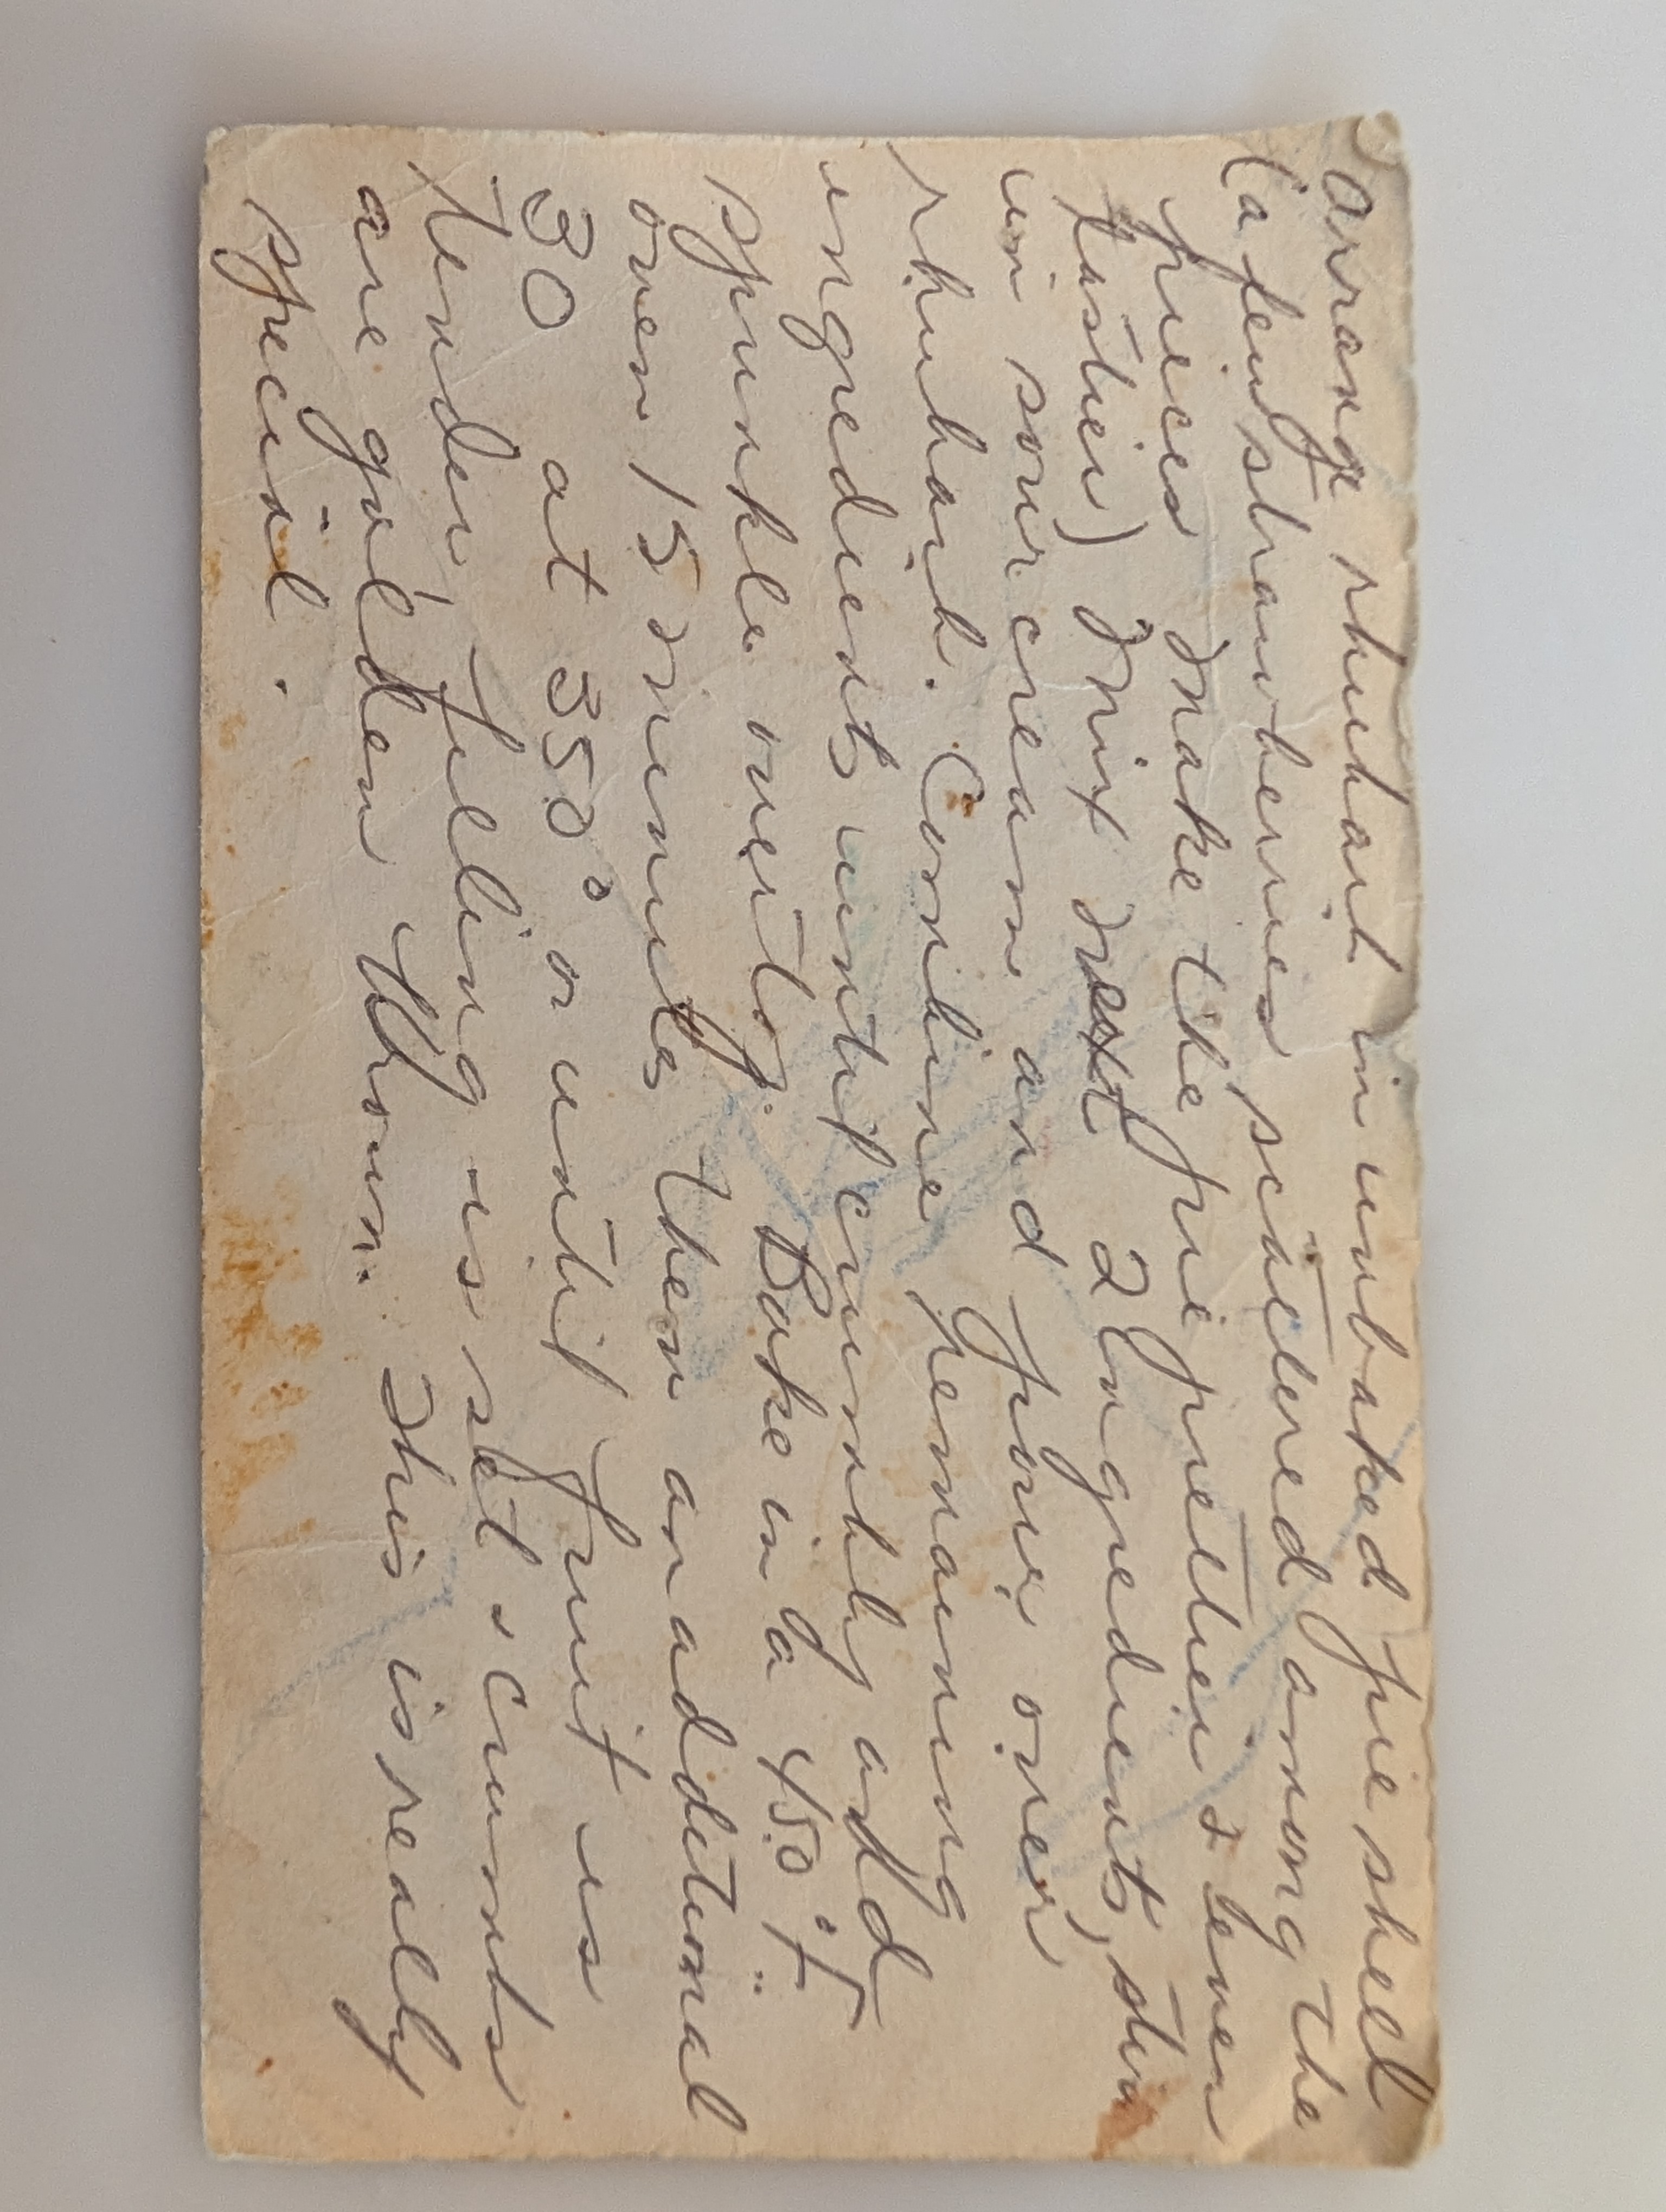 Arrange rhubarb in unbaked pie shell
(a few strawberries scattered among the
pieces make the pie prettier & even
tastier) Mix next 2 ingredients, stir
in sour cream and pour over
rhubarb. Combine remaining
ingredients until crumbly and
sprinkle over top. Bake in a 450°F
oven 15 minutes then an additional
30 at 350° or until fruit is
tender, filling is set & crumbs
are golden brown. This is really
special.